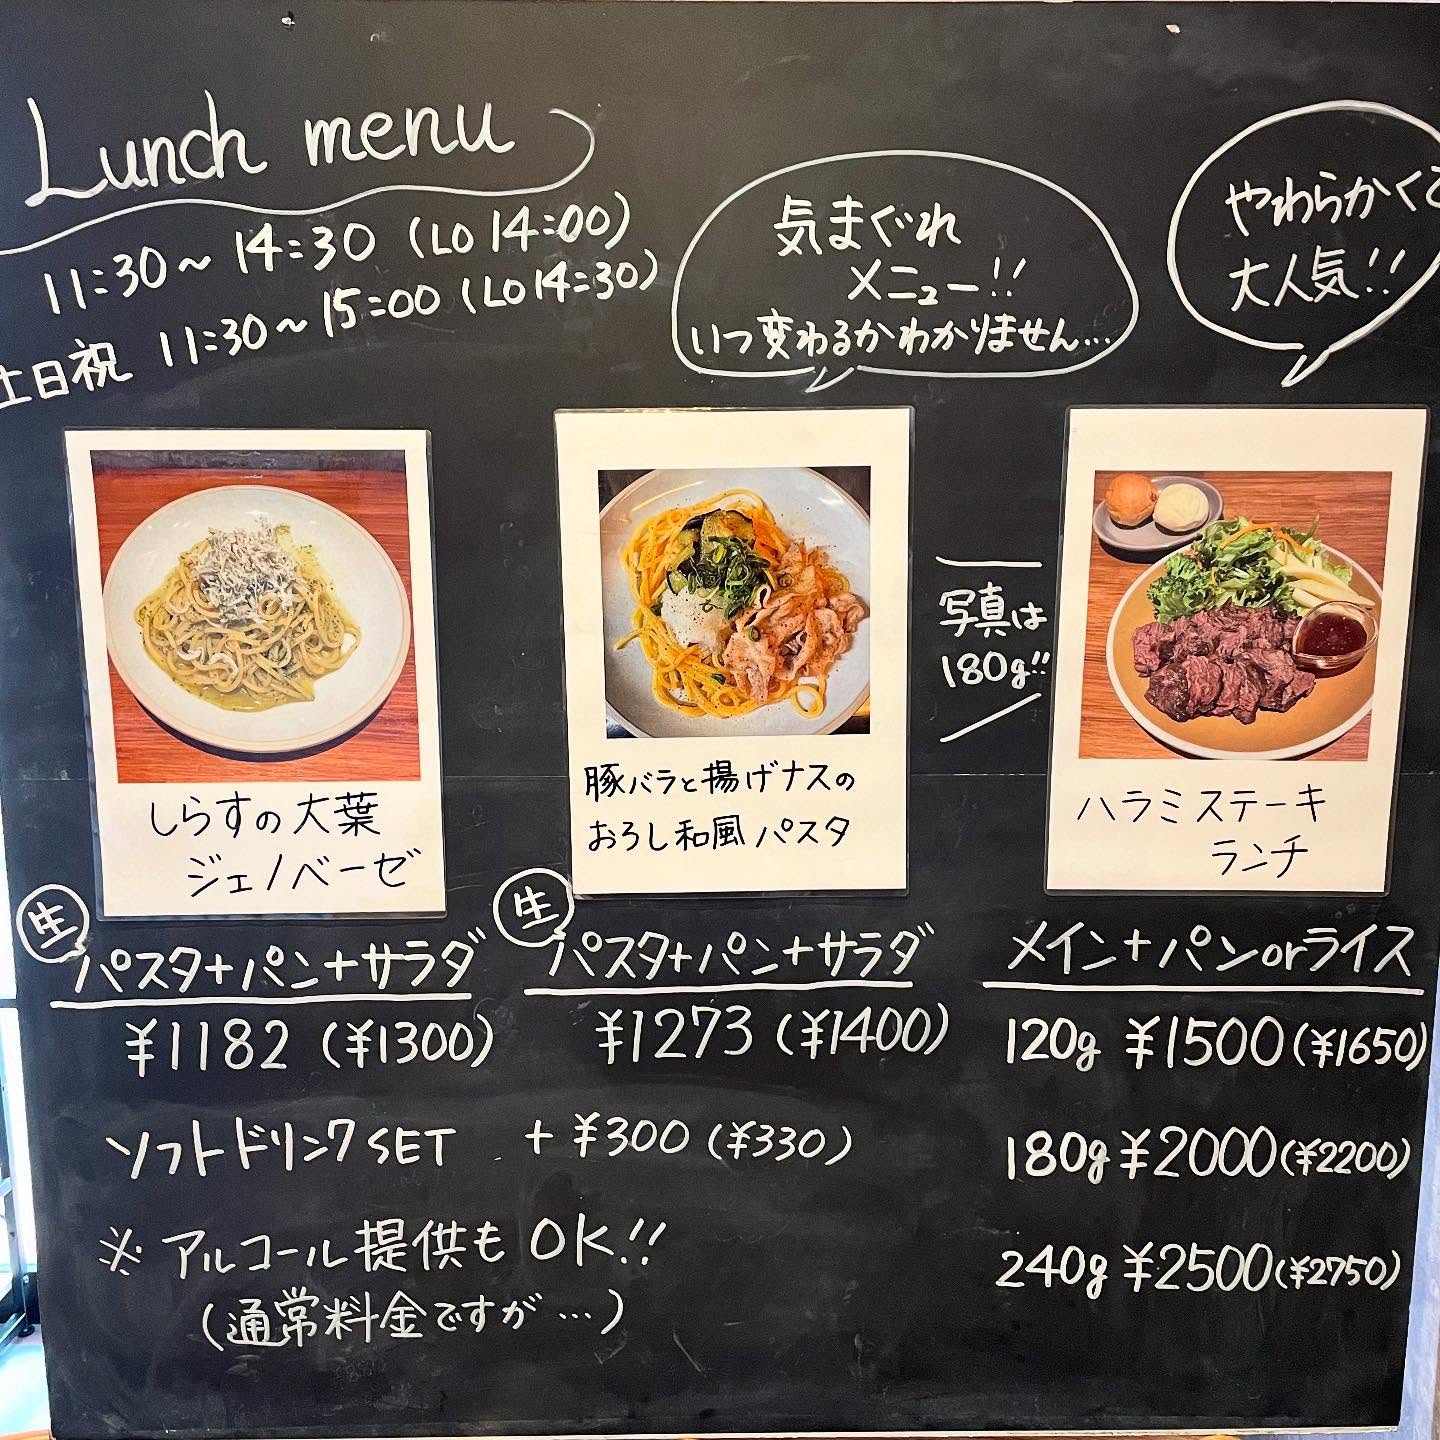 Lunch menu
11:30~14:30 (LO 14:00)
土日祝 11:30~15:00 (LO 14:30)
気まぐれ
メニュー!!
いつ変わるかわかりません…
やわらかくて
大人気!!
しらすの大葉
ジェノベーゼ
生
パスタ+パン+サラダ
¥1182 (¥1300)
豚バラと揚げナスの
おろし和風パスタ
生
パスタ+パン+サラダ
¥1273 (¥1400)
写真は
180g!!
ハラミステーキ
ランチ
メイン+パンorライス
120g ¥1500 (¥1650)
180g ¥2000 (¥2200)
240g ¥2500 (¥2750)
ソフトドリンクSET +¥300 (¥330)
※アルコール提供もOK!!
(通常料金ですが…)